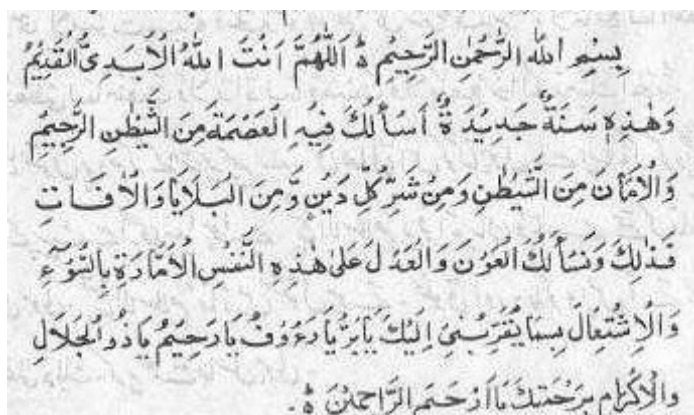 بِسْمِ اللهِ الرَّحْمٰنِ الرَّحِيْمِ ۵ اَللّٰهُمَّ اَنْتَ اللهُ الْاَبَدِىُّ الْقَدِيْمُ
وَهٰذِهٖ سَنَةٌ جَدِيْدَةٌ اَسْأَلُكَ فِيْهِ الْعَصْمَةَ مِنَ الشَّيْطٰنِ الرَّجِيْمِ
وَالْاَمَانَ مِنَ الشَّيْطٰنِ وَمِنْ شَرِّ كُلِّ دَيْنٍ وَّمِنَ الْبَلَايَا وَالْاٰفَاتِ
وَنَسْأَلُكَ الْعَوْنَ وَالْعَدْلَ عَلٰى هٰذِهِ النَّفْسِ الْاَمَّارَةِ بِالسُّوْٓءِ
وَالْاِشْتِعَالَ بِمَا يُقَرِّبُنِىْ اِلَيْكَ يَا بَرُّ يَا رَءُوْفُ يَا رَحِيْمُ يَا ذُو الْجَلَالِ
وَالْاِكْرَامِ بِرَحْمَتِكَ يَا اَرْحَمَ الرَّاحِمِيْنَ ۵